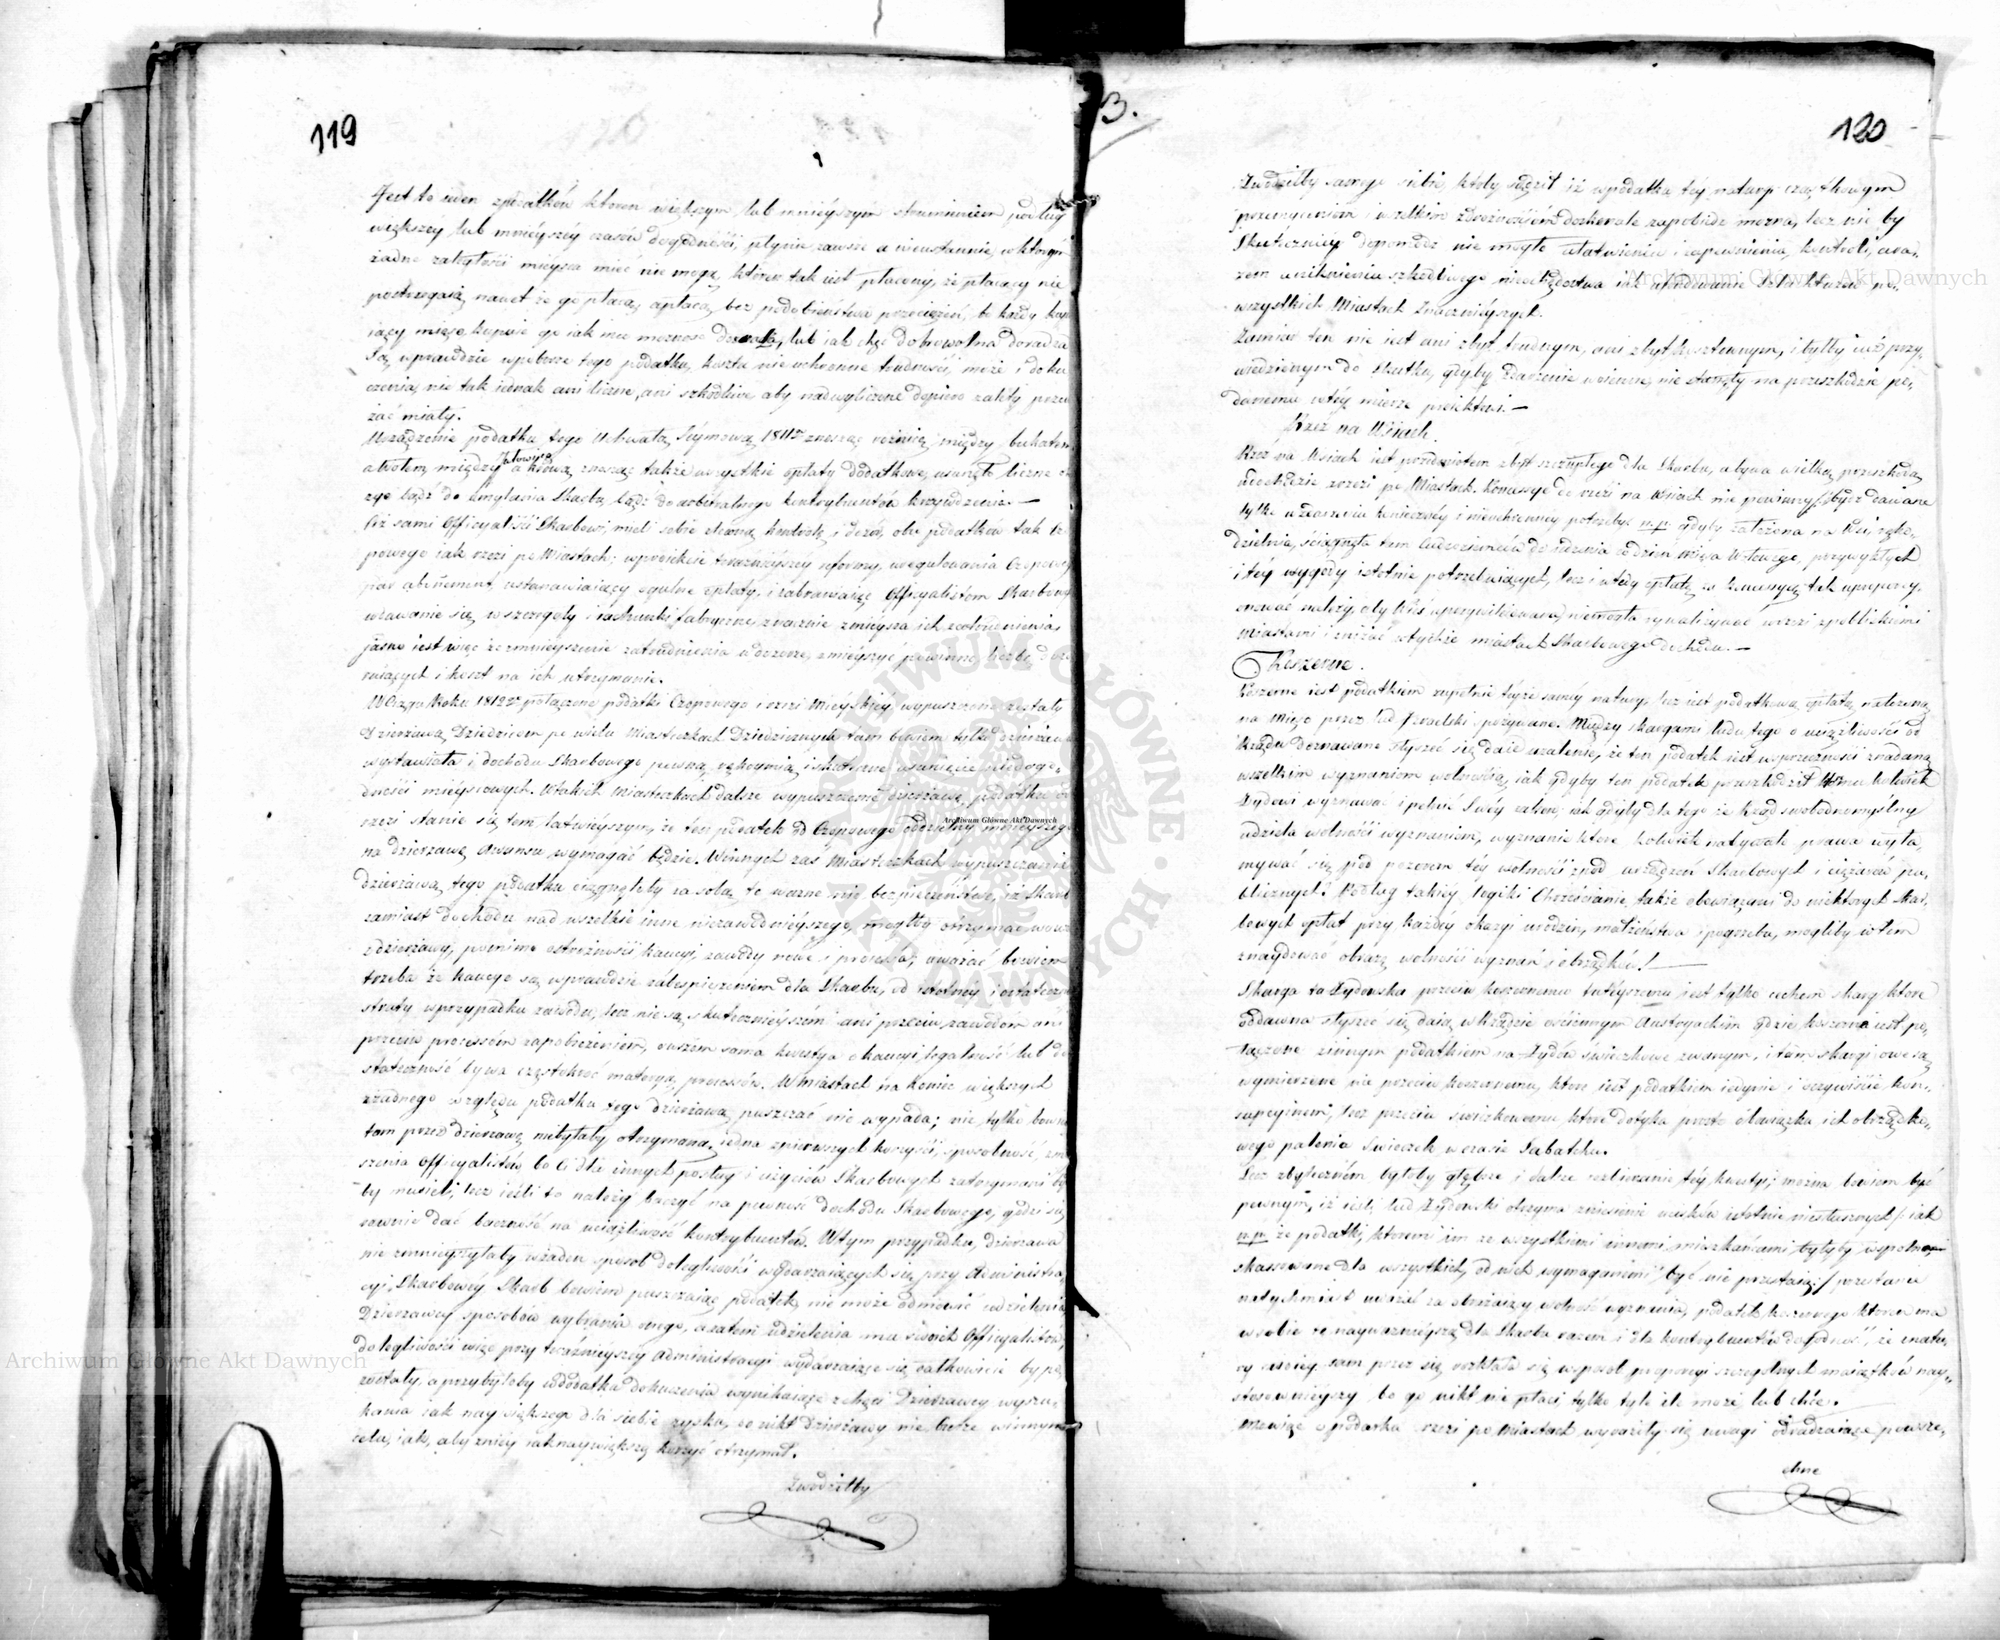 119
Jest to ieden z podatków ktoren większym lub mnieyszym strumieniem podług
większey lub mnieyszey czasów dogodności, płynie zawsze a nieustannie, w którym
żadne zaległości mieysca mieć nie mogą, któren tak iest płacony, że płacący nie
postrzegaią nawet że go płacą, a płacą bez podobieństwa przeciążeń, bo każdy kup
iący mięso kupuie go iak mu możność lub iak chęć dobrowolna doradza
Są wprawdzie w poborze tego podatku, koszta nieuchronne trudności, może i doku
czenia, nie tak iednak ani liczne, ani szkodliwe aby nadwyliczone dopiero zalety prze
żać miały.
Urządzenie podatku tego Uchwałą Seymową 1811 znosząc różnicę między buhatem
a wołem, między Jałowicą a krową, znosząc także wszystkie opłaty dodatkowe, usunęło liczne
do zmylania Skarbu bądź do arbitralnego kontrybuentów krzywdzenia. —
Ciż sami Officyaliści Skarbowi mieli sobie zleconą kontrolę i dozór, obu podatków tak
powego iak rzezi po Miastach; w proiekcie teraźnieyszey reformy, uregulowania Czopowego
przez abonament, ustanawiaiący ogulne opłaty, i zabraniaiąc Officyalistom Skarbowym
wdawanie się w szczegóły i rachunki fabryczne, znacznie zmnieysza ich zatrudnienia,
jasno iest więc że zmnieyszenie zatrudnienia w dozorze, zmnieyszyć powinno liczbę dozo
ruiących i koszt na ich utrzymanie.
W Ciągu Roku 1812 połączone podatki Czopowego i rzezi Mieyskiey wypuszczone zostały
Dzierżawą Dziedzicom po wielu Miasteczkach Dziedzicznych, tam bowiem tylko dzierżawa
wystawiała i dochodu Skarbowego pewną rękoymią i skuteczne usunięcie niedogo-
dności mieyscowych. W takich Miasteczkach dalsze wypuszczenie dzierżawą podatku od
rzezi stanie się tem łatwieyszym, że ten podatek od Czopowego oddzielny mnieyszego
na dzierżawę Awansu wymagać będzie. W innych zaś Miasteczkach wypuszczenie
dzierżawą tego podatku ciągnęłoby za sobą to ważne niebezpieczeństwo, iż Skarb
zamiast dochodu nad wszelkie inne niezawodnieyszego, mógłby otrzymać w
z dzierżawy, pomimo ostrożności kaucyi, zawody nowe i processa, uważać bowiem
trzeba że kaucye są wprawdzie zabespieczeniem dla Skarbu, od istotney i ostateczney
straty w przypadku zawodu, lecz nie są skutecznieyszem ani przeciw zawodom ani
przeciw processom zapobieżeniem, owszem sama kwestya o kaucyi, legalność lub do
stateczność bywa częstokroć materyą processów. W miastach na koniec większych
z żadnego względu podatku tego dzierżawą puszczać nie wypada; nie tylko bowiem
tam przez dzierżawę niebyłaby otrzymana iedna z pierwszych korzyści, sposobność zmniey
szenia Officyalistów bo Ci dla innych posług i użyciów Skarbowych zatrzymani być
by musieli, lecz ieśli to należy baczyć na pewność dochodu Skarbowego, godzi się
zarównie dać baczność na uciążliwość kontrybuentów. W tym przypadku, dzierżawa
nie zmnieyszyłaby w żaden sposób dolegliwości wydarzaiących się przy Administra
cyi Skarbowey Skarb bowiem puszczaiąc podatek, nie może odmówić udzielenia
Dzierżawcy sposobów wybrania onego, a zatem udzielenia mu swoich Officyalistów,
dolegliwości więc przy teraźnieyszey Administracyi wydarzaiące się całkowicie by po
zostały, a przybyłoby w dodatku dokuczenia wynikaiące z chęci Dzierżawcy wyszu-
kania iak naywiększego dla siebie zysku, bo nikt Dzierżawy nie bierze w innym
celu, iak, aby z niey iaknaywiększą korzyść otrzymał.
Zwodziłby
3.
120
Zwodziłby samego siebie, ktoby sądził iż w podatku tey natury cząstkowym
przemyceniom i wszelkim zdrożnościom doskonale zapobiedz można, lecz nie by
skuteczniey dopomódz nie mogło ułatwieniu i zapewnieniu kontroli, a ra-
zem uniknieniu szkodliwego niechędostwa iak wybudowanie Szlachtuzów po
wszystkich Miastach Znacznieyszych.
Zamiar ten nie iest ani zbyt trudnym, ani zbyt kosztownym, i byłby iuż przy-
wiedzionym do Skutku, gdyby zdarzenia woienne, nie stanęły na przeszkodzie po-
danemu w tey mierze proiektowi. —
Rzeź na Wsiach.
Rzeź na Wsiach iest przedmiotem zbyt szczupłego dla Skarbu, a bywa wielką przeszkodą
w dochodzie z rzezi po Miastach. Konsensye do rzezi na Wsiach nie powinny być dawane
tylko w zdarzeniu konieczney i nieuchronney potrzeby n.p. gdyby założona na Wsi ręko-
dzielnia, ściągnęła tam Cudzoziemców do iedzenia co dzień mięsa W-, przywykłych
i tey wygody istotnie potrzebuiących, lecz i wtedy opłatę tak uproporcy-
onować należy, aby Wieś uprzywileiowana niemogła rywalizować w rzezi z pobliskiemi
Miastami i zniżać w tychże miastach Skarbowego dochodu. —
Koszerne.
Koszerne iest podatkiem zupełnie teyże samey natury, lecz iest podatkową opłatą nałożoną
na mięso przez lud Izraelski pożywane. Między skargami ludu tego o uciążliwości od
Rządu doznawane słyszeć się daie użalenie, że ten podatek iest w sprzeczności z nadaną
wszelkim wyznaniom wolnością, iak gdyby ten podatek przeszkodził komu kolwiek
Żydowi wyznawać i pełnić swóy zakon; iak gdyby dla tego że Rząd swobodnomyślny
udziela wolności wyznaniom, wyznanie które kolwiek nabywało prawa wyła-
mywać się pod pozorem tey wolności z pod urządzeń Skarbowych i ciężarów pu-
blicznych! Podług takiey logiki Chrześcianie, także obowiązani do niektorych Skar-
bowych opłat przy każdey okazyi urodzin, małżeństwa i pogrzebu, mogliby w tem
znaydować obrazę wolności wyznań i obrządków! —
Skarga ta Żydowska przeciw koszernemu tuteyszemu iest tylko echem skarg które
oddawna słyszeć się daią w Rządzie ościennym Austryackim gdzie koszerne iest po-
łączone z innym podatkiem na Żydów świeczkowe zwanym, i tam skargi owe są
wymierzone nie przeciw koszernemu, które iest podatkiem iedynie i oczywiście kon-
supcyinem, lecz przeciw świeczkowemu które dotyka prosto obowiązku ich obrządko-
wego palenia świeczek w czasie Sabatchu.
Lecz zbyteczném byłoby głębsze i dalsze roztrząsanie tey kwestyi; można bowiem być
pewnym, iż ieśli lud Żydowski otrzyma zniesienie ucisków istotnie niesłusznych / iak
n.p. że podatki, któremi im ze wszystkiemi innemi mieszkańcami byłyby wspólne
skassowane dla wszystkich, od nich wymaganemi być nie przestaią / przestanie
natychmiast uważać za obrażaiący wolność wyznania, podatek koszernego które ma
w sobie tę nayważnieyszą dla Skarbu razem i dla kontrybuentów dogodność, że z natu-
ry swoiey sam przez się rozkłada się w sposób proporcyi szczególnych maiątków nay-
stosownieyszy, bo go nikt nie płaci tylko tyle ile może lub chce.
Mówiąc o podatku rzezi po Miastach wyraziły się uwagi odradzaiące powsze-
chne
Archiwum Główne Akt Dawnych
Archiwum Główne Akt Dawnych
Archiwum Główne Akt Dawnych